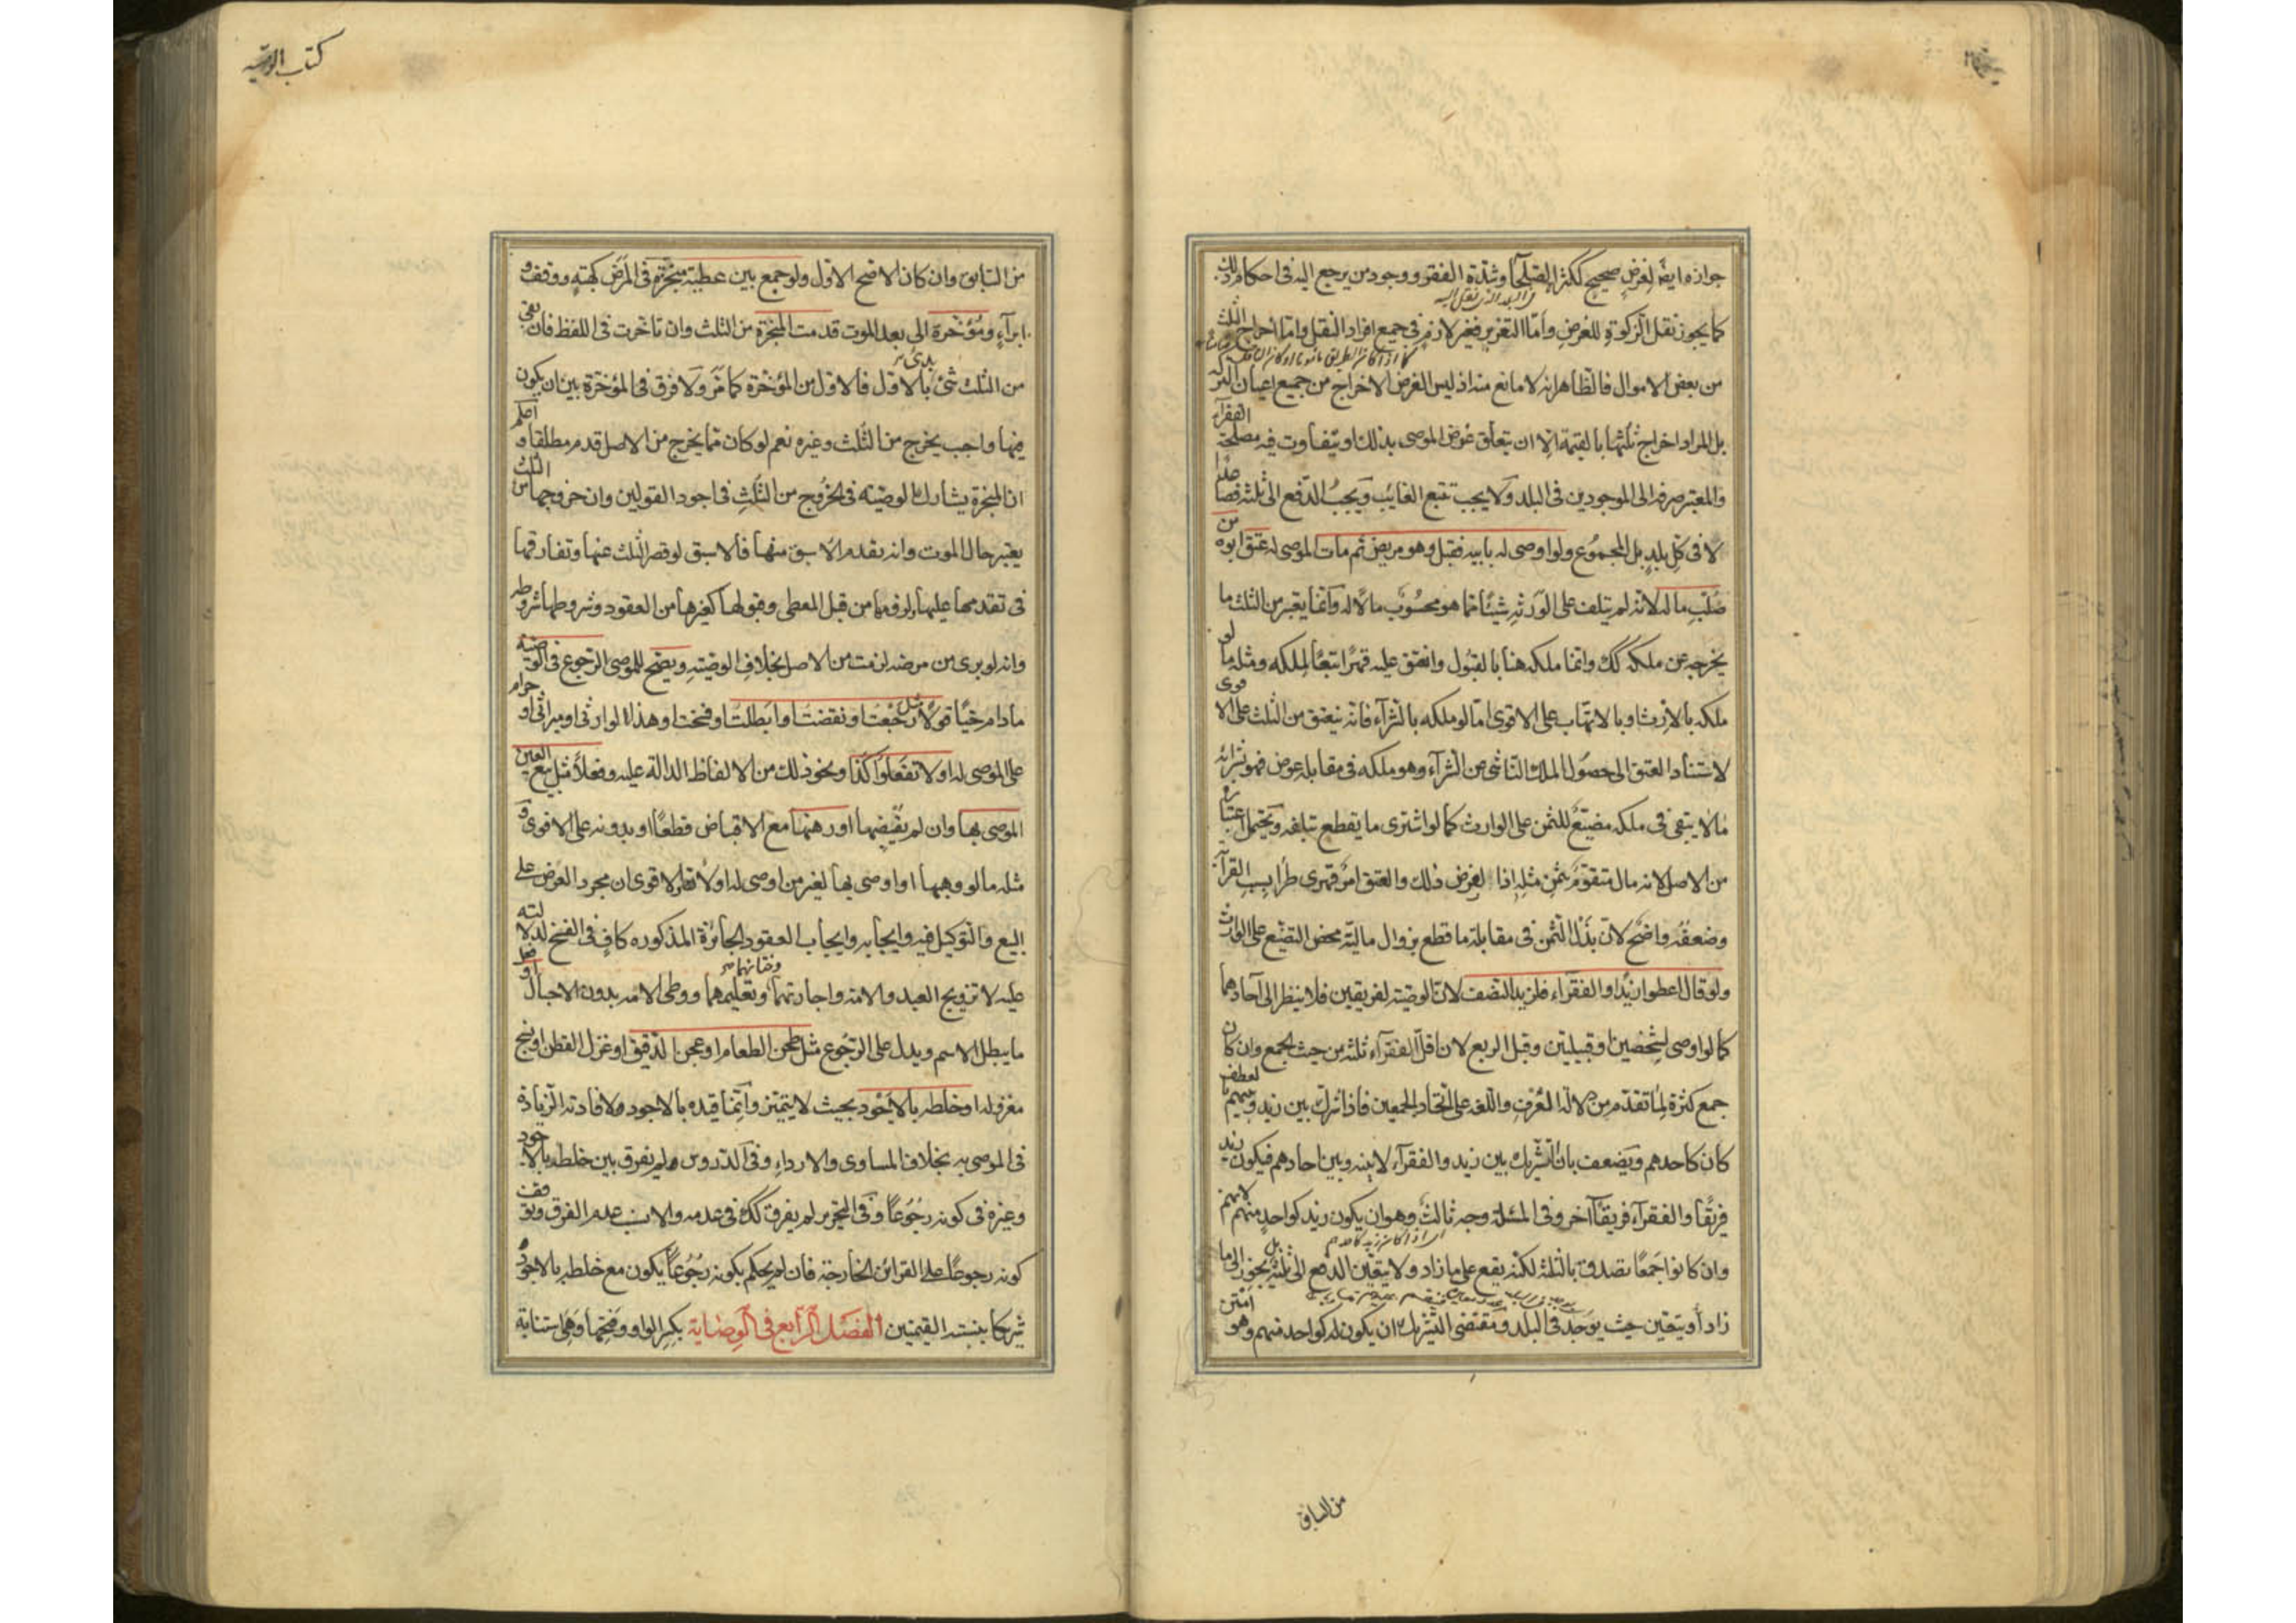 جوازه ايضا لغرض صحيح ككثرة الصلحاء وشدة الفقر ووجود من يرجع اليه في احكام ذلك
كما يجوز نقل الزكوة للغرض واما التغرير فغير لازم في جميع افراد النقل واما اخراج الثلث
من بعض الاموال فالظاهر انه لا مانع منه اذ ليس الغرض الاخراج من جميع اعيان التركة
بل المراد اخراج ثلثها بالقيمة الا ان يتعلق غرض الموصى بذلك او يتفاوت فيه مصلحة الفقراء
والمعتبر صرفه الى الموجودين في البلد ولا يجب تتبع الغايب ويجب الدفع الى ثلثة فصاعدا
لا في كل بلد بل المجموع ولو اوصى له بابيه فقبل وهو مريض ثم مات الموصى له عتق ابوه من
صلب ماله لانه لم يتلف على الورثة شيئا مما هو محسوب مالا له وانما يعتبر من الثلث ما
يخرجه عن ملكه كك وانما ملكه هنا بالقبول وانعتق عليه قهرا تبعا لملكه ومثله ما لو
ملكه بالارث او بالاتهاب على الاقوى اما لو ملكه بالشراء فانه ينعتق من الثلث على الاقوى
لاستناد العتق الى حصول الملك الناشى عن الشراء وهو ملكه في مقابلة عوض فهو بشرائه
ما لا يبقى في ملكه مضيع للثمن على الوارث كما لو اشترى ما يقطع بتلفه ويحتمل اعتباره
من الاصل لانه مال متقوم بثمن مثله اذا لفرض ذلك والعتق امر قهرى طرا بسبب القرابة
وضعفه واضح لان بذل الثمن في مقابلة ما قطع بزوال ماليته محض التضييع على الوارث
ولو قال اعطوا زيدا والفقراء فلزيد النصف لان الوصية لفريقين فلا ينظر الى آحادهما
كما لو اوصى لشخصين او قبيلتين وقيل الربع لان اقل الفقراء ثلثة من حيث الجمع وان كان
جمع كثرة لما تقدم من دلالة العرف واللغة على اتحاد الجمعين فاذا شرك بين زيد وبينهم بالعطف
كان كاحدهم ويضعف بان التشريك بين زيد والفقراء لا بينه وبين احادهم فيكون زيد
فريقا والفقراء فريقا آخر وفي المسئلة وجه ثالث وهو ان يكون زيد كواحد منهم لانهم
وان كانوا جمعا يصدق بالثلثة لكنه يقع على ما زاد ولا يتعين الدفع الى ثلثة بل يجوز الى ما
زاد او يتعين حيث يوجد في البلد ومقتضى التشريك ان يكون له كواحد منهم وهو امتن
من السابق
كتاب الوصية
من السابق وان كان الاصح الاول ولو جمع بين عطية منجزة في المرض كهبة ووقف و
ابراء ومؤخرة الى بعد الموت قدمت المنجزة من الثلث وان تاخرت في اللفظ فان بقى
من الثلث شئ بدئ بالاول فالاول من المؤخرة كما مر ولا فرق في المؤخرة بين ان يكون
فيها واجب يخرج من الثلث وغيره نعم لو كان مما يخرج من الاصل قدم مطلقا واعلم
ان المنجزة يشارك الوصية في الخروج من الثلث في اجود القولين وان خروجها من الثلث
يعتبر حال الموت وانه يقدم الاسبق منها فالاسبق لو قصر الثلث عنها وتفارقها
في تقدمها عليها ولزومها من قبل المعطى وقبولها كغيرها من العقود وشروطها شروطه
وانه لو برئ من مرضه لزمت من الاصل بخلاف الوصية ويصح للموصى الرجوع في الوصية
ما دام حيا قولا مثل رجعت او نقضت او ابطلت او فسخت او هذا لوارثى او ميراثى او حرام
على الموصى له او لا تفعلوا كذا ونحو ذلك من الالفاظ الدالة عليه وفعلا مثل بيع العين
الموصى بها وان لم يقبضها او رهنها مع الاقباض قطعا او بدونه على الاقوى و
مثله ما لو وهبها او اوصى بها لغير من اوصى له اولا والاقوى ان مجرد العرض على
البيع والتوكيل فيه وايجابه وايجاب العقود الجائزة المذكورة كاف في الفسخ لدلالته
عليه لا تزويج العبد والامة واجارتهما وختانهما وتعليمهما ووطى الامة بدون الاحبال او فعل
ما يبطل الاسم ويدل على الرجوع مثل طحن الطعام او عجن الدقيق او غزل القطن او نسج
مغزوله او خلطه بالاجود بحيث لا يتميز وانما قيده بالاجود لافادته الزيادة
في الموصى به بخلاف المساوى والارداء وفي الدروس لم يفرق بين خلطه بالاجود
وغيره في كونه رجوعا وفي التحرير لم يفرق كك في عدمه والانسب عدم الفرق وتوقف
كونه رجوعا على القرائن الخارجة فان لم يحكم بكونه رجوعا يكون مع خلطه بالاجود
شريكا بنسبة القيمتين الفصل الرابع في الوصاية بكسر الواو وفتحها وهى استنابة